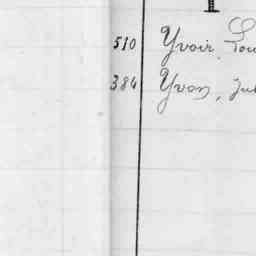 510 Yvoir, Lou
384 Yvon, Jul